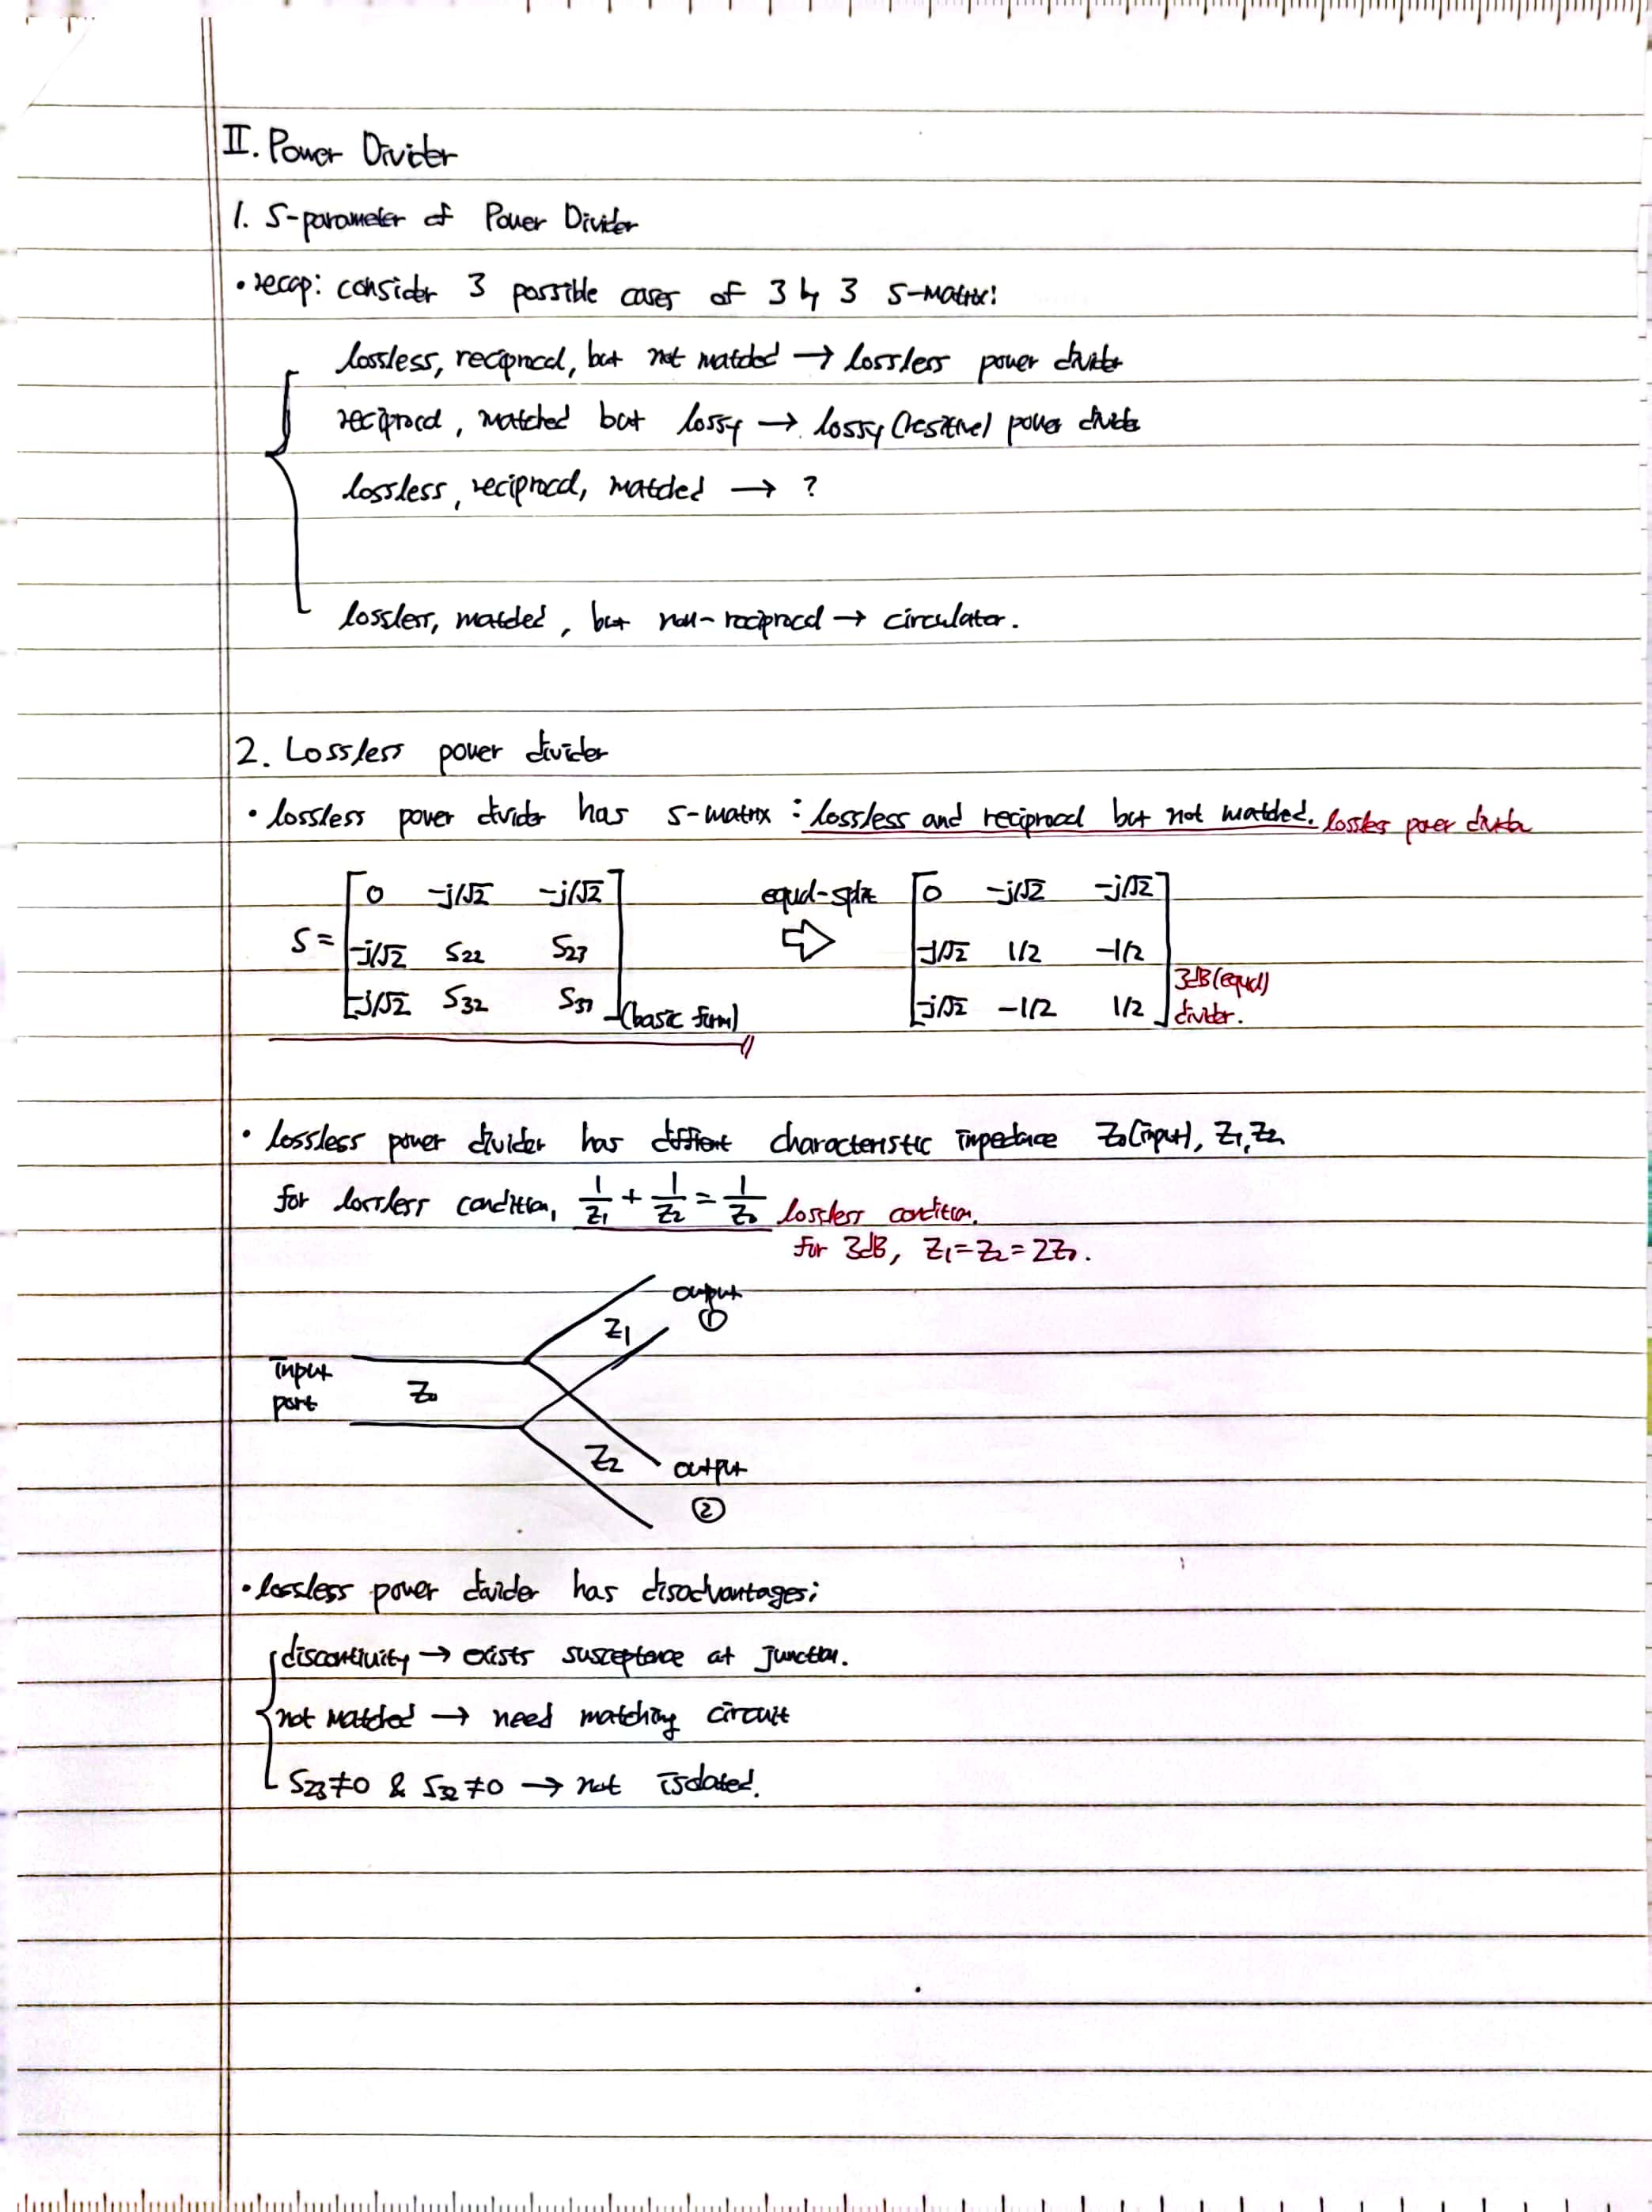 II. Power Divider
1. S-parameter of Power Divider
• recap: consider 3 possible cases of 3 by 3 S-matrix:
lossless, reciprocal, but not matched → lossless power divider
reciprocal, matched but lossy → lossy (resistive) power divider
lossless, reciprocal, matched → ?
lossless, matched, but non-reciprocal → circulator.
2. Lossless power divider
• lossless power divider has S-matrix : lossless and reciprocal but not matched. lossless power divider
S = [ 0 -j/√2 -j/√2 ; -j/√2 S22 S23 ; -j/√2 S32 S33 ] (basic form) equal-split ⇨ [ 0 -j/√2 -j/√2 ; -j/√2 1/2 -1/2 ; -j/√2 -1/2 1/2 ] 3dB (equal) divider.
• lossless power divider has different characteristic impedance Z0 (input), Z1, Z2
for lossless condition, 1/Z1 + 1/Z2 = 1/Z0 lossless condition.
for 3dB, Z1 = Z2 = 2Z0.
output
①
Z1
input
port
Z0
Z2
output
②
• lossless power divider has disadvantages;
discontinuity → exists susceptance at junction.
not matched → need matching circuit
S23≠0 & S32≠0 → not isolated.